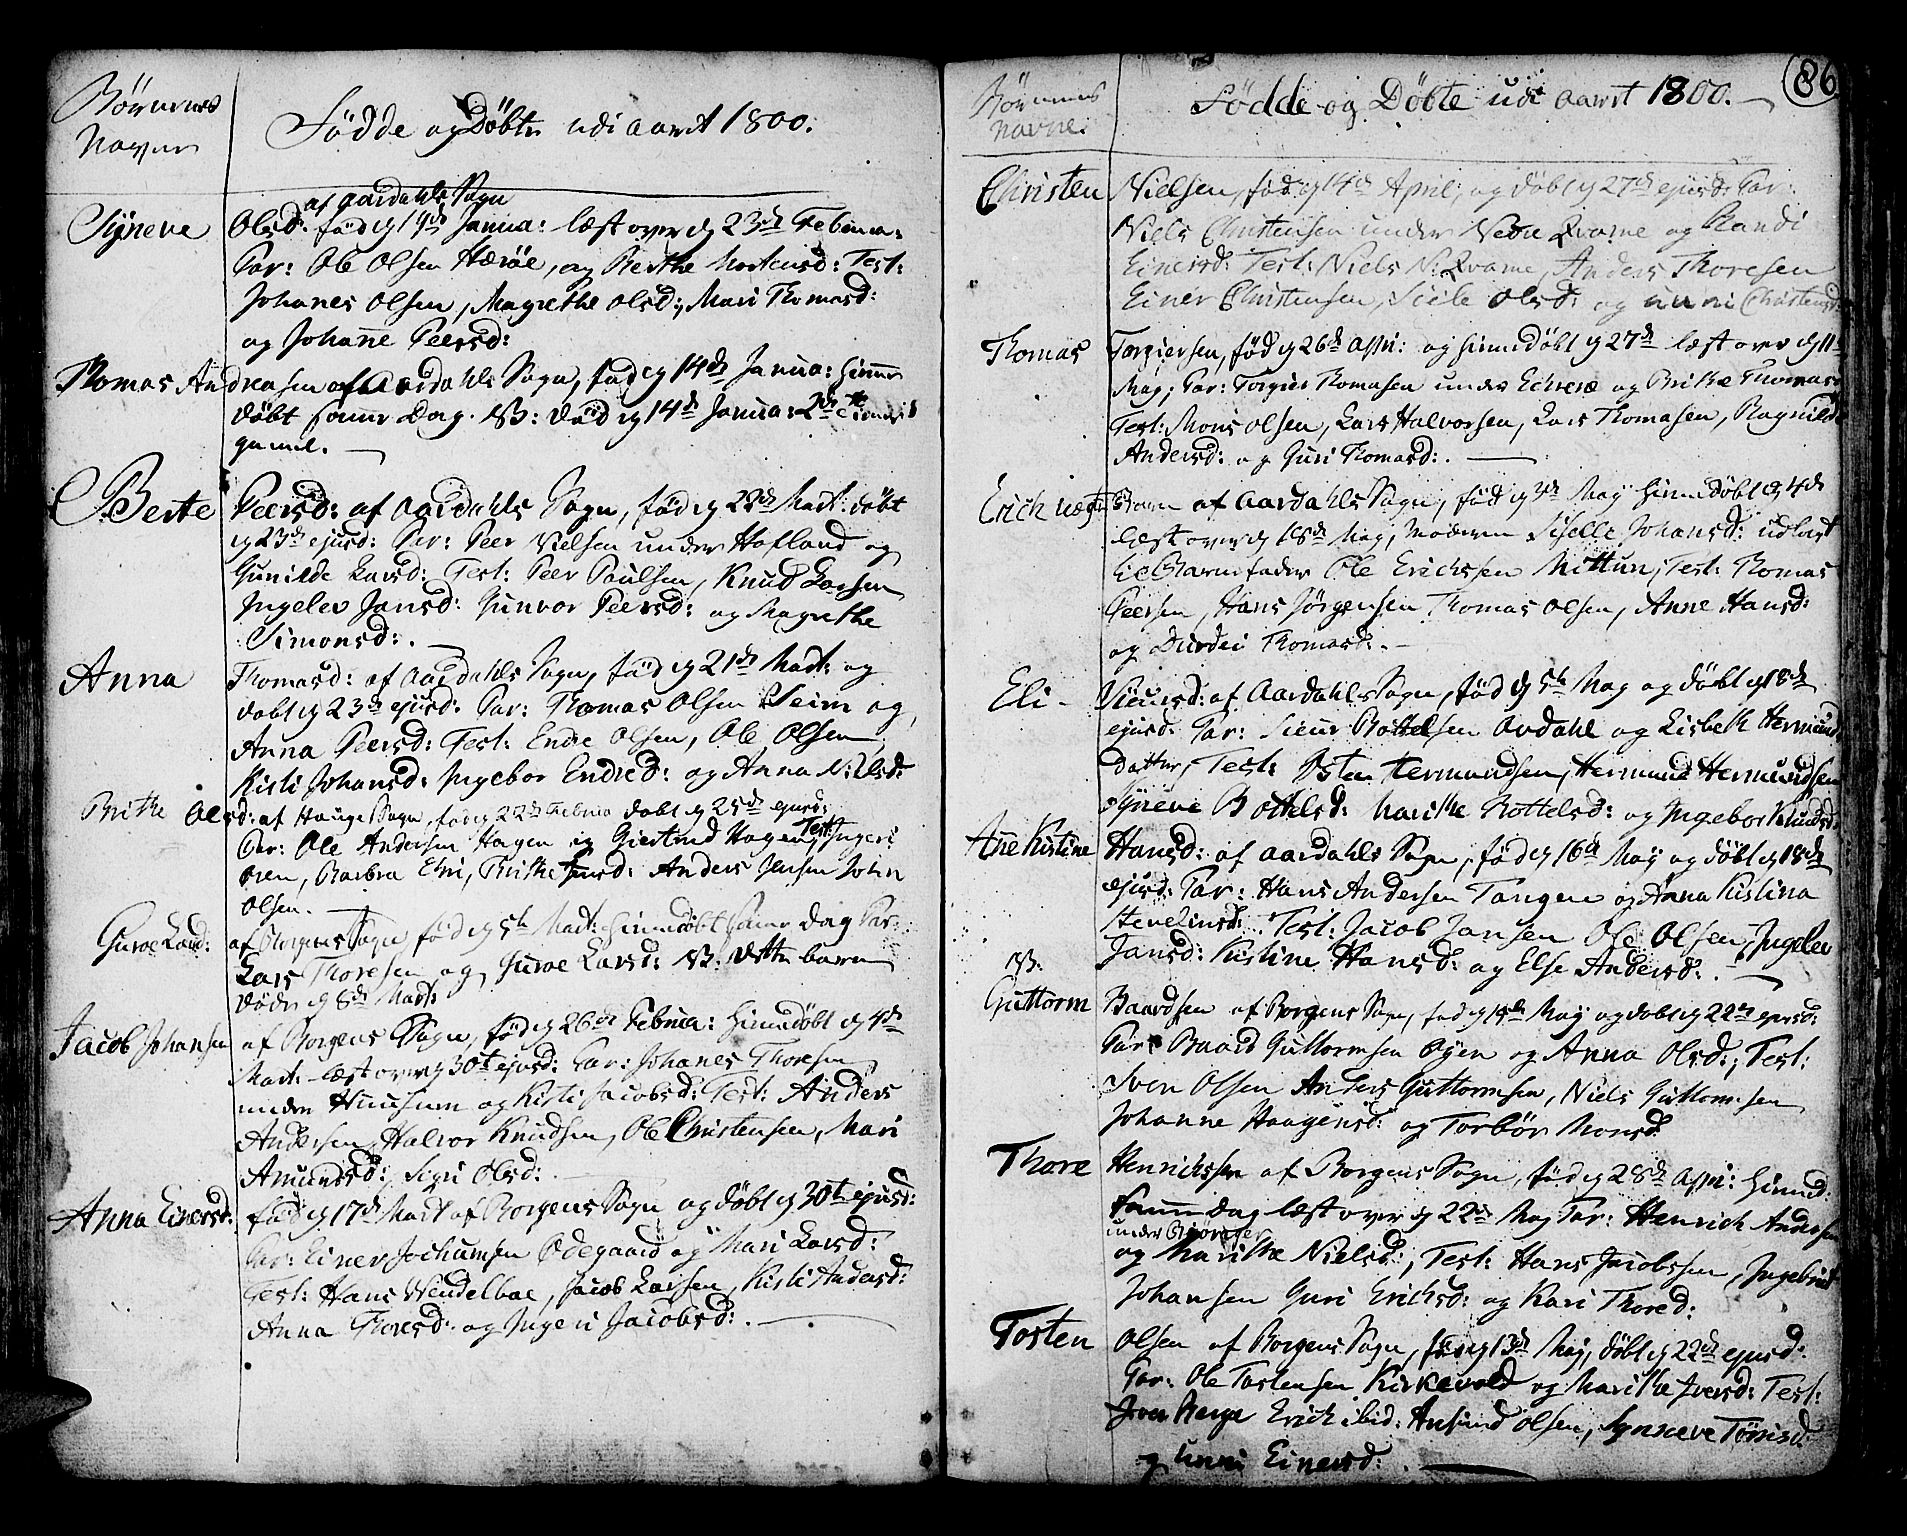 Børnenes
Navne
Födde og Döbte udi Aaret 1800.
af Aardahls Sogn
Syneve Olsd: fød d 19de Janua: læst over d 23de Februa:
Par: Ole Olsen Hæröe, og Berthe Mortensd: Test:
Johanes Olsen, Magrethe Olsd:, Mari Thomasd:
og Johane Peersd:
Thomas Andreasen af Aardahls Sogn, fød d 14de Janua: hiemme
döbt samme Dag. NB: död d 14de Janua:
gamel.
Berte Peersd: af Aardahls Sogn, fød d 22de Mart: döbt
d 23de ejusd: Par: Peer Nielsen under Hofland og
Gunilde Larsd: Test: Peer Paulsen, Knud Larsen
Ingelev Jansd: Gunvor Peersd: og Magrethe
Simonsd:.
Anna Thomasd: af Aardahls Sogn, fød d 21de Mart: og
döbt d 23de ejusd: Par: Thomas Olsen Seim og
Anna Peersd: Test: Endre Olsen, Ole Olsen
Kisti Johansd: Ingebor Endred: og Anna Nielsd:
Brithe Olsd: af Hauge Sogn, fød d 22de Februa döbt d 25de ejusd:
Par: Ole Andersen Hagen og Giertrud Hagen, Test: Ingeri
Øren, Barbra Elvi, Brithe Anders Jensen John
Olsen.
Guroe Larsd: af Borgens Sogn fød d 5te Mart: hiemdöbt samme Dag Par:
Lars Thoresen og Guroe Larsd: NB: dette barn
döde d 8de Mart:
Jacob Johansen af Borgens Sogn, fød d 26de Februa: hiemdöbt d 4de
Mart: læst over d 30te ejusd: Par: Johanes Thoresen
under Huusum og Kisti Jacobsd: Test: Anders
Andersen, Halvor Knudsen, Ole Christensen, Mari
Amundsd: Sigri Olsd:
Anna Einersd: fød d 17de Mart af Borgens Sogn og döbt d 30te ejusd:
Par: Einer Jochumsen Ødegaard og Mari Larsd:
Test: Hans Wendelboe, Jacob Larsen, Kisti Andersd:
Anna Thoresd: og Ingeri Jacobsd:.
86
Börnenes
Navne.
Födde og Döbte udi Aaret 1800.
Christen Nielsen, fød d 14de April, og döbt d 27de ejusd: Par:
Niels Christensen under Nedre Qvame og Randi
Einersd: Test: Niels N: Qvame, Anders Thoresen
Einer Christensen, Sicile Olsd: og Unni Christensd:
Thomas Torgiersen, fød d 26de Apri: og hiemdöbt d 27de læst over d 11te
May; Par: Torgier Thomasen under Eichren og Brithe Thomasd:
Test: Mons Olsen, Lars Halvorsen, Lars Thomasen, Ragnilde
Andersd: og Guri Thomasd:.
Erich uægte Barn af Aardahls Sogn, fød d 3de May hiemdöbt d 4de
læst over d 18de May, Moderen Siselle Johansd: udlagt
til Barnefader Ole Erichsen Mittun, Test: Thomas
Peersen, Hans Jörgensen Thomas Olsen, Anne Hansd:
og Durdei Thomasd:.
Eli Sieursd: af Aardahls Sogn, fød d 5te May og döbt d 18de
ejusd: Par: Sieur Bottelsen Ardahl og Lisbeth Hermund
Datter, Test: Østen Hermundsen, Hermund Hermundsen
Syneve Bottelsd: Marithe Bottelsd: og Ingebor Knudsd:
Ane Kistine Hansd: af Aardahls Sogn, fød d 16de May og döbt d 18de
ejusd: Par: Hans Andersen Tangen og Anna Kistina
Stenelinsd: Test: Jacob Jansen Ole Olsen, Ingelev
Jansd: Kistine Hansd: og Else Andersd:.
NB.
Guttorm Baardsen af Borgens Sogn, fød d 14de May og döbt d 22de ejusd:
Par: Baard Guttormsen Øyen og Anna Olsd:; Test:
Iven Olsen Anders Guttormsen, Niels Guttormsen
Johanne Haagensd: og Torbör Monsd:
Thore Henrichsen af Borgens Sogn, fød d 28de Apri: hiemd:
samme Dag læst over d 22de May Par: Henrich Andersen
under Biørager
og Marithe Nielsd:, Test: Hans Jacobsen, Ingebrit
Johansen Guri Erichsd: og Kari Thored:
Tosten Olsen af Borgens Sogn, fød d 13de May, döbt d 22de ejusd:
Par: Ole Tostensen Kirkevold og Marithe Iversd: Test:
Iver Berge Erich ibid: Ansund Olsen, Synneve Tönisd:
og Unni Einersd:.